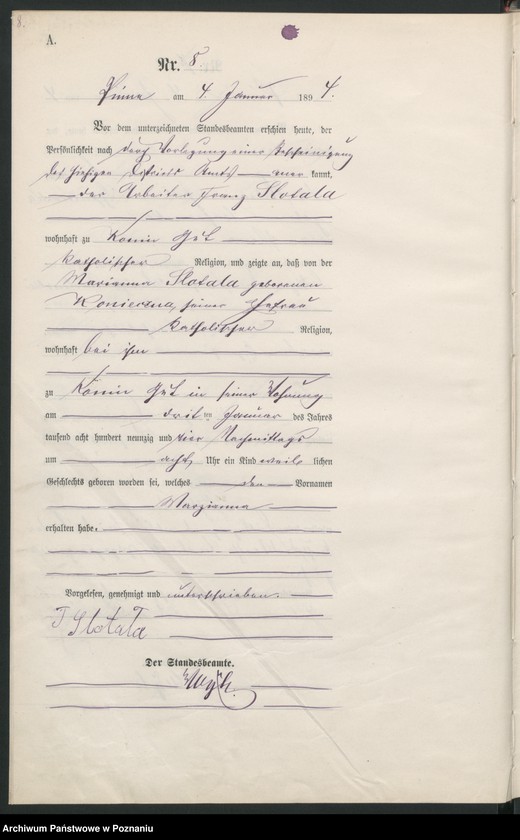 8.
A.
Nr. 8.
Pinne am 4. Januar 1894.
Vor dem unterzeichneten Standesbeamten erschien heute, der
Persönlichkeit nach durch Vorlegung einer Bescheinigung
des hiesigen Distrikts Amts aner kannt,
der Arbeiter Franz Slotala
wohnhaft zu Konin Gut
katholischer Religion, und zeigte an, daß von der
Marianna Slotala geborenen
Konieczna, seiner Ehefrau
katholischer Religion,
wohnhaft bei ihm
zu Konin Gut in seiner Wohnung
am dritten Januar des Jahres
tausend acht hundert neunzig und vier Nachmittags
um acht Uhr ein Kind weib lichen
Geschlechts geboren worden sei, welches den Vornamen
Maryianna
erhalten habe.
Vorgelesen, genehmigt und unterschrieben
F Slotala
Der Standesbeamte.
Archiwum Państwowe w Poznaniu